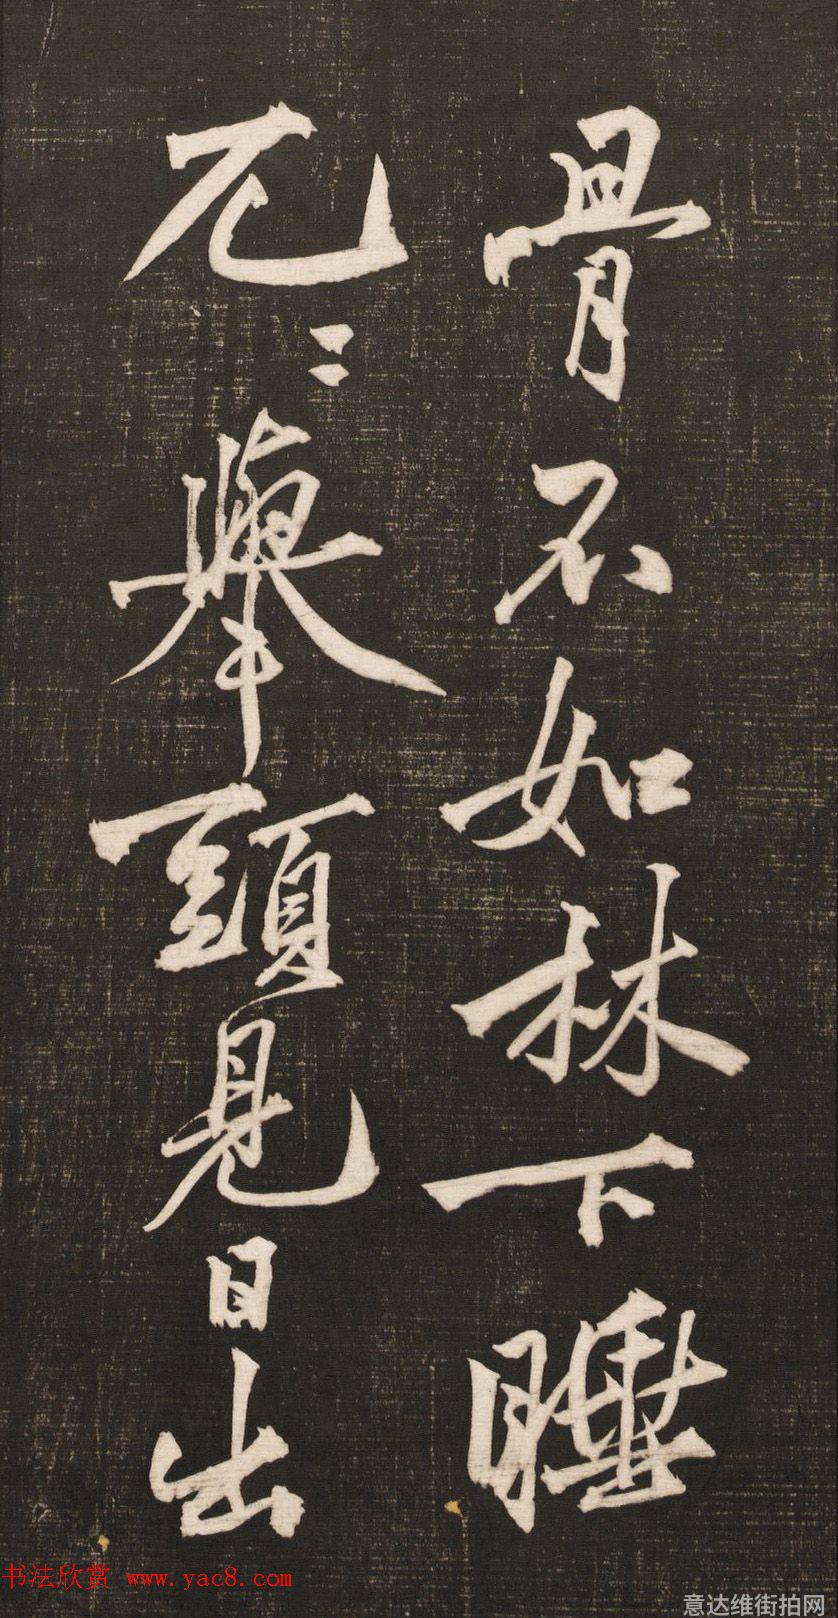 骨不如林下睡
兀〻舉頭見日出
书法欣赏 www.yac8.com
意达维街拍网